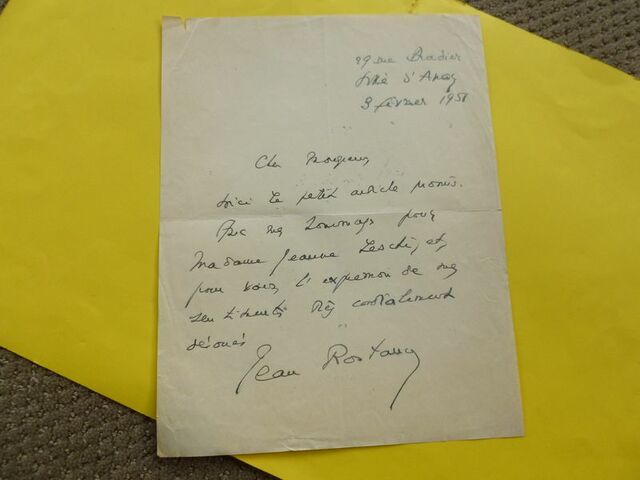 29 rue Pradier
Ville d'Avray
3 février 1951
Cher Monsieur,
Voici le petit article promis.
Avec mes hommages pour
Madame Jeanne et,
pour vous, l'expression de mes
sentiments très cordialement
dévoués
Jean Rostand